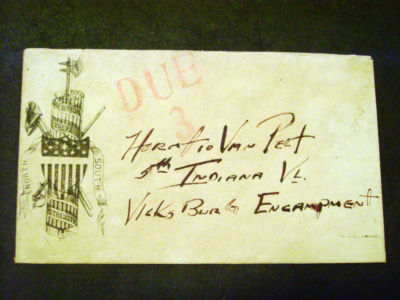 DUE
3
Horatio Van Pelt
5th Indiana Vl.
Vicksburg Encampment
NORTH
SOUTH